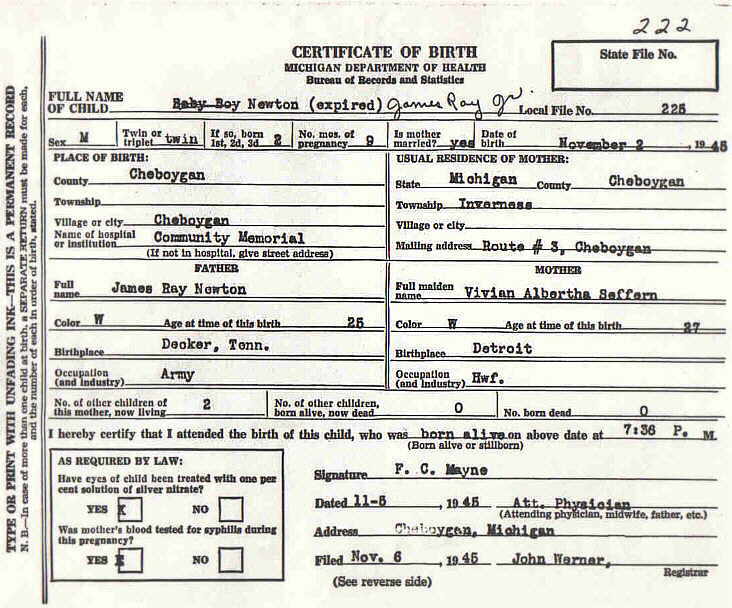 222
CERTIFICATE OF BIRTH
MICHIGAN DEPARTMENT OF HEALTH
Bureau of Records and Statistics
State File No.
FULL NAME OF CHILD Baby Boy Newton (expired) James Ray Jr. Local File No. 225
Sex M Twin or triplet twin If so, born 1st, 2d, 3d 2 No. mos. of pregnancy 9 Is mother married? yes Date of birth November 2, 1945
PLACE OF BIRTH:
County Cheboygan
Township
Village or city Cheboygan
Name of hospital or institution Community Memorial
(If not in hospital, give street address)
USUAL RESIDENCE OF MOTHER:
State Michigan County Cheboygan
Township Inverness
Village or city
Mailing address Route # 3, Cheboygan
FATHER
Full name James Ray Newton
Color W Age at time of this birth 25
Birthplace Decker, Tenn.
Occupation (and industry) Army
MOTHER
Full maiden name Vivian Albertha Seffern
Color W Age at time of this birth 27
Birthplace Detroit
Occupation (and industry) Hwf.
No. of other children of this mother, now living 2 No. of other children, born alive, now dead 0 No. born dead 0
I hereby certify that I attended the birth of this child, who was born alive on above date at 7:36 P. M.
(Born alive or stillborn)
AS REQUIRED BY LAW:
Have eyes of child been treated with one per
cent solution of silver nitrate?
YES X NO
Was mother's blood tested for syphilis during
this pregnancy?
YES X NO
Signature F. C. Mayne
Dated 11-5, 1945 Att. Physician
(Attending physician, midwife, father, etc.)
Address Cheboygan, Michigan
Filed Nov. 6, 1945 John Werner,
Registrar
(See reverse side)
TYPE OR PRINT WITH UNFADING INK—THIS IS A PERMANENT RECORD
N. B.—In case of more than one child at birth, a SEPARATE RETURN must be made for each,
and the number of each in order of birth, stated.